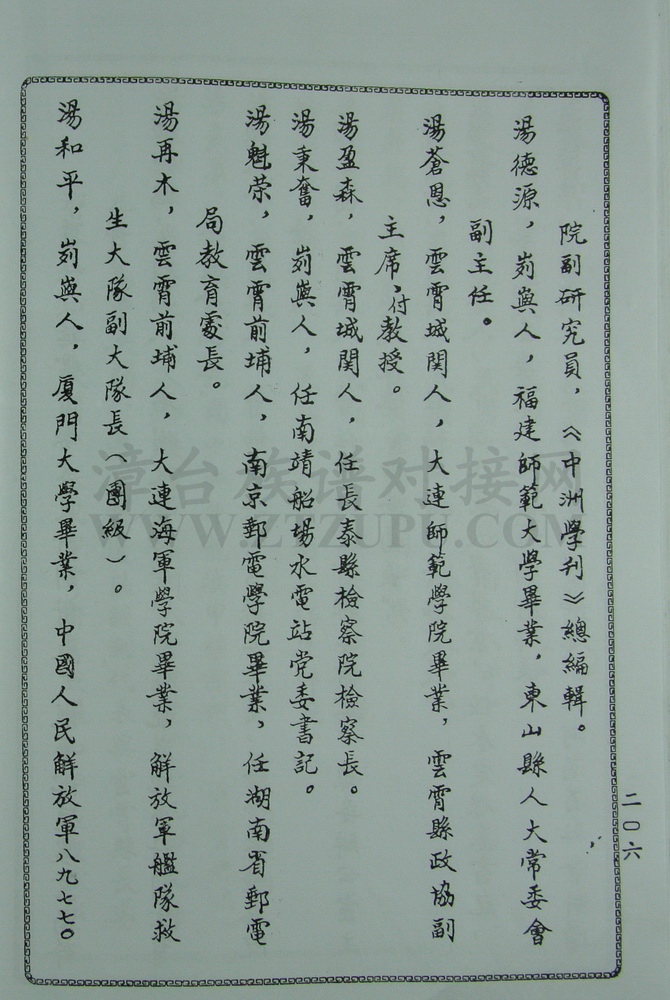 院副研究員，《中洲學刊》總編輯。
湯德源，峛嶼人，福建師範大學畢業，東山縣人大常委會
副主任。
湯蒼恩，雲霄城関人，大連師範學院畢業，雲霄縣政協副
主席、付教授。
湯盈森，雲霄城関人，任長泰縣檢察院檢察長。
湯秉奮，峛嶼人，任南靖船場水電站党委書記。
湯魁荣，雲霄前埔人，南京郵電學院畢業，任湖南省郵電
局教育處長。
湯再木，雲霄前埔人，大連海軍學院畢業，解放軍艦隊救
生大隊副大隊長（團級）。
湯和平，峛嶼人，厦門大學畢業，中國人民解放軍八九七七〇
二〇六
漳台族谱对接网
WWW.ZTZUPU.COM